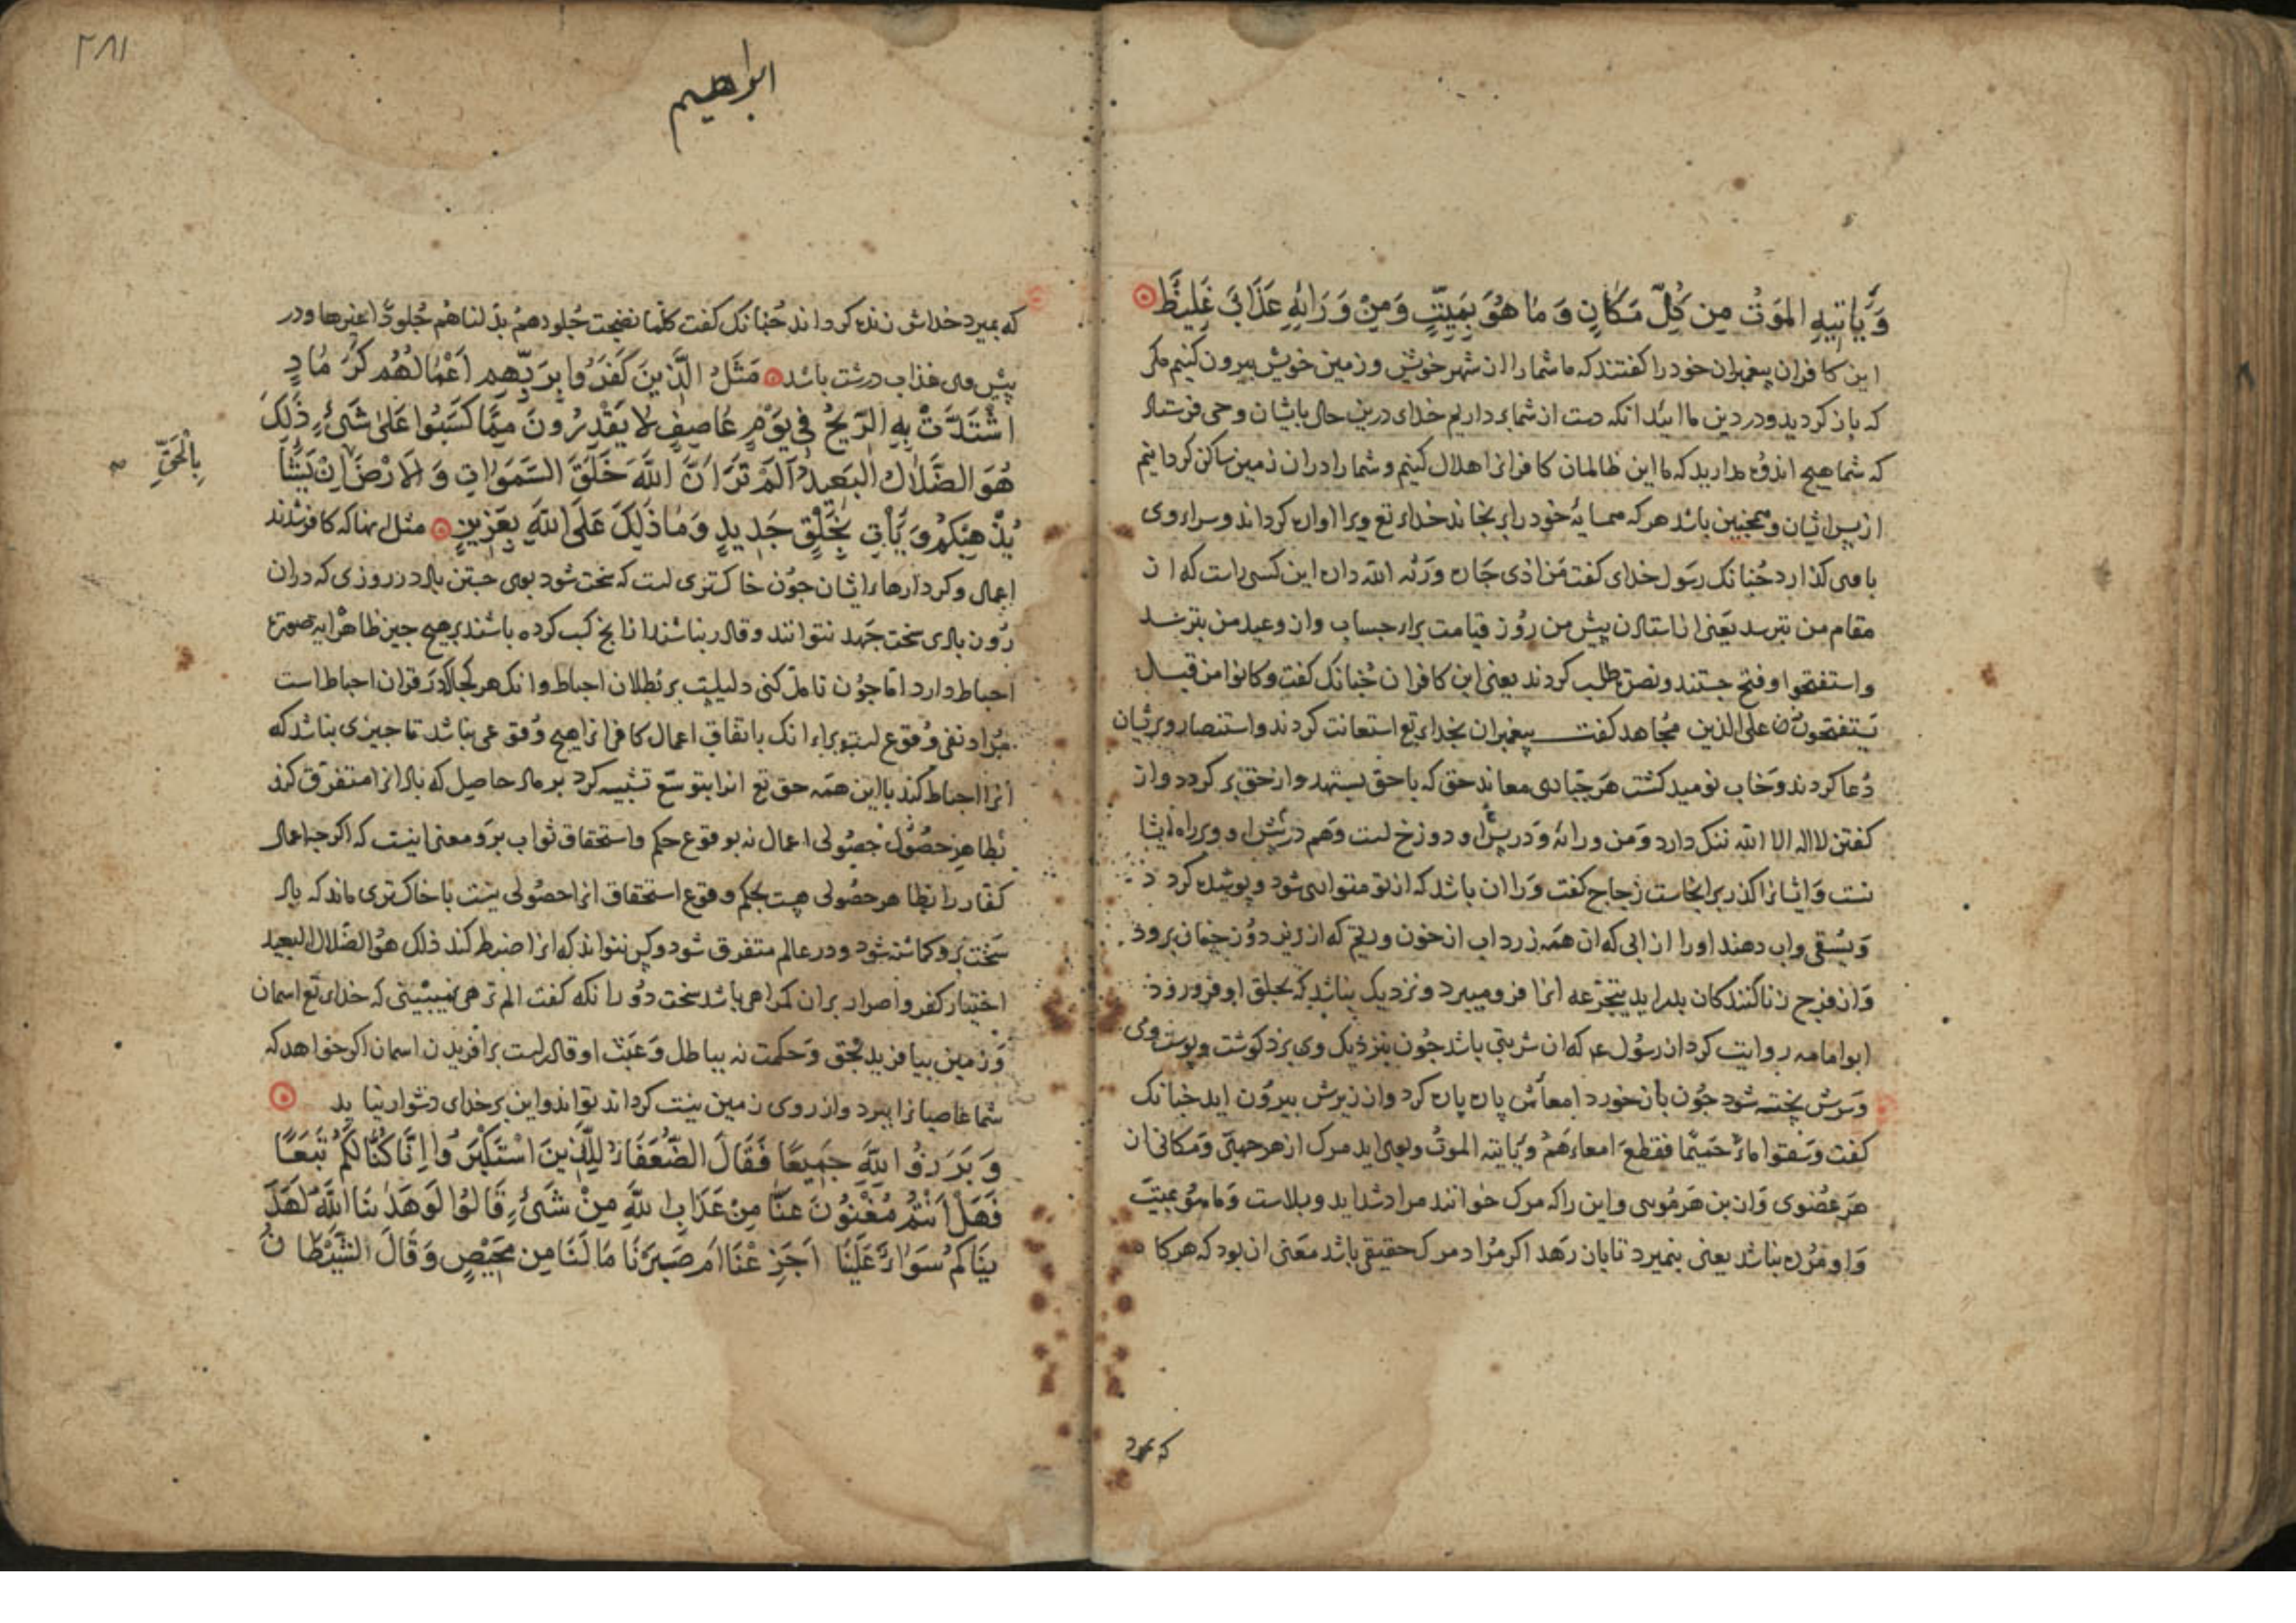 وَيَأْتِيهِ الْمَوْتُ مِن كُلِّ مَكَانٍ وَمَا هُوَ بِمَيِّتٍ وَمِنْ وَرَائِهِ عَذَابٌ غَلِيظٌ
این کافران پیغمبران خود را کفتند که ما شما را از شهر خویش و زمین خویش بیرون کنیم مکر
که باز کردید و در دین ما ایید انکه دست از شما بر داریم خدای درین حال بایشان وحی فرستاد
که شما هیچ اندوه مدارید که ما این ظالمان کافرانرا هلاک کنیم و شما را در ان زمین ساکن کردانیم
از پس ایشان و همچنین باشد هر که همسایهٔ خود را برنجاند خدای تع ویرا اواره کرداند و سرای وی
با وی کذارد چنانک رسول خدای کفت من اذی جاره ورثه الله داره این کسی راست که از
مقام من بترسد یعنی از استادن پیش من روز قیامت برای حساب و از وعید من بترسد
واستفتحوا و فتح جستند و نصرت طلب کردند یعنی این کافران چنانک کفت وکانوا من قبل
یستفتحون علی الذین مجاهد کفت پیغمبران بخدای تع استعانت کردند و استنصار و بریشان
دعا کردند وخاب نومید کشت هر جباری معاند حق که با حق بستهد و از حق بر کردد و از
کفتن لا اله الا الله ننک دارد ومن ورائه و در پس او دوزخ است وهم در پیش او و بر راه ایشا
نست و ایشانرا کذر بر انجاست زجاج کفت ورا ان باشد که از تو متواری شود و پوشیده کردد
ویسقی واب دهند او را از ابی که ان همه زرداب از خون و ریم که از زیر دوزخیان برود
و از فرج زناکنندکان بدر اید یتجرعه انرا فرو میبرد و نزدیک نباشد که بحلق او فرو رود
ابو امامه روایت کرد از رسول عم که ان شربتی باشد چون بنزدیک وی برد کوشت و پوست وی
وسرش پخته شود چون بازخورد امعاش پاره پاره کرد و از زیرش بیرون اید چنانک
کفت وسقوا ماءً حمیمًا فقطع امعاءهم ویأتیه الموت وبوی اید مرک از هر جهتی و مکانی از
هر عضوی و از بن هر مویی و این را که مرک خوانند مراد شداید و بلاست وما هو بمیت
و او مرده نباشد یعنی بنمیرد تا بازرهد اکر مراد مرک حقیقی باشد معنی ان بود که هرکا
که بمیرد
۲۸۱
ابراهیم
که بمیرد خداش زنده کرداند چنانک کفت کلما نضجت جلودهم بدلناهم جلودًا غیرها و در
پیش وی عذاب درشت باشد مَثَلُ الَّذِينَ كَفَرُوا بِرَبِّهِمْ أَعْمَالُهُمْ كَرَمَادٍ
اشْتَدَّتْ بِهِ الرِّيحُ فِي يَوْمٍ عَاصِفٍ لَا يَقْدِرُونَ مِمَّا كَسَبُوا عَلَىٰ شَيْءٍ ذَٰلِكَ
هُوَ الضَّلَالُ الْبَعِيدُ أَلَمْ تَرَ أَنَّ اللَّهَ خَلَقَ السَّمَوَاتِ وَالْأَرْضَ إِنْ يَشَأْ
بِالْحَقِّ
يُذْهِبْكُمْ وَيَأْتِ بِخَلْقٍ جَدِيدٍ وَمَا ذَٰلِكَ عَلَى اللَّهِ بِعَزِيزٍ مثل انها که کافر شدند
اعمال و کردارهاء ایشان چون خاکستری است که سخت شود بوی جستن باد در روزی که دران
روز بادی سخت جهد نتوانند و قادر نباشند از انچ کسب کرده باشند بر هیچ چیز ظاهر ایه صورت
احباط دارد اما چون تامل کنی دلیلیست بر بطلان احباط و انک هر کجا که در قران احباط است
مراد نفی وقوع است برای انک باتفاق اعمال کافرانرا هیچ وقوعی نباشد تا چیزی نباشد که
انرا احباط کند با این همه حق تع انرا بتوسع تشبیه کرد برماد حاصل که باد انرا متفرق کند
بظاهر حصول حصولی اعمال نه بوقوع حکم و استحقاق ثواب برو و معنی اینست که اکرچه اعمال
کفار را بظاهر حصولی هست بحکم وقوع استحقاق انرا حصولی نیست با خاکستری ماند که باد
سخت برو کماشته شود و در عالم متفرق شود و کس نتواند که انرا ضبط کند ذلک هو الضلال البعید
اختیار کفر و اصرار بران کمراهی باشد سخت دور انکه کفت الم تر هی نمیبینی که خدای تع اسمان
و زمین بیافرید بحق و حکمت نه بباطل و عبث او قادر است بر افریدن اسمان اکر خواهد که
شما عاصیانرا ببرد و از روی زمین نیست کرداند تواند و این بر خدای دشوار نیاید
وَبَرَزُوا لِلَّهِ جَمِيعًا فَقَالَ الضُّعَفَاءُ لِلَّذِينَ اسْتَكْبَرُوا إِنَّا كُنَّا لَكُمْ تَبَعًا
فَهَلْ أَنْتُمْ مُغْنُونَ عَنَّا مِنْ عَذَابِ اللَّهِ مِنْ شَيْءٍ قَالُوا لَوْ هَدَانَا اللَّهُ لَهَدَ
يْنَاكُمْ سَوَاءٌ عَلَيْنَا أَجَزِعْنَا أَمْ صَبَرْنَا مَا لَنَا مِن مَحِيصٍ وَقَالَ الشَّيْطَانُ